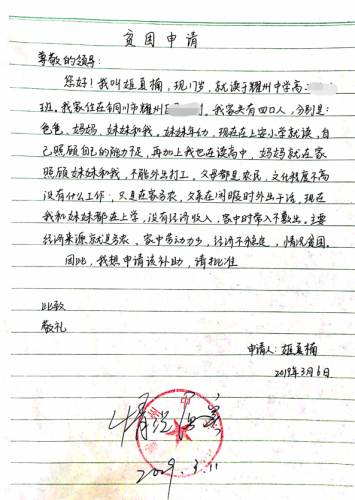 贫困申请
尊敬的领导:
您好!我叫雄夏楠,现17岁,就读于耀州中学高二
班。我家住在铜川市耀州。我家共有四口人,分别是:
爸爸、妈妈、妹妹和我。妹妹年幼,现在在上安小学就读,自
己照顾自己的能力不足,再加上我也在读高中,妈妈就在家
照顾妹妹和我,不能外出打工。父母都是农民,文化程度不高
没有什么工作,只是在家务农,父亲在闲暇时外出干活,现在
我和妹妹都在上学,没有经济收入,家中时常入不敷出。主要
经济来源就是务农、家中劳动力少,经济不稳定,情况贫困。
因此,我想申请该补助,请批准
此致
敬礼
申请人:雄夏楠
2019年3月6日
州中
2019.3.11